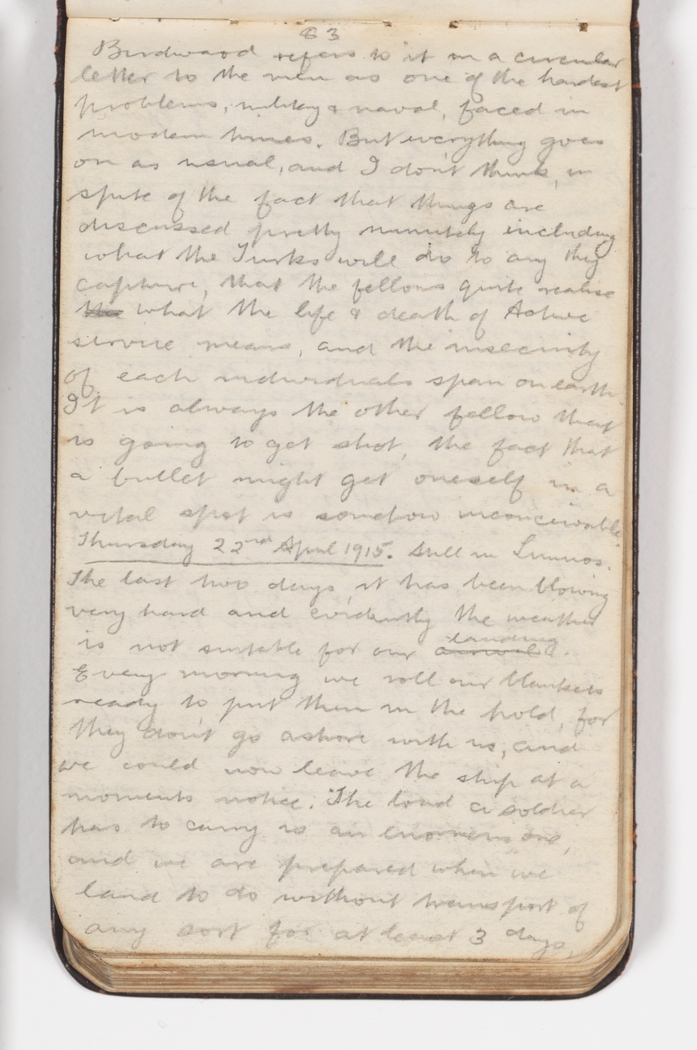 63
Birdwood refers to it in a circular
letter to the men as one of the hardest
problems, military & naval, faced in
modern times. But everything goes
on as usual, and I don't think, in
spite of the fact that things are
discussed pretty minutely including
what the Turks will do to any they
capture, that the fellows quite realise
the what the life & death of Active
service means, and the insecurity
of each individuals span on earth.
It is always the other fellow that
is going to get shot, the fact that
a bullet might get oneself in a
vital spot is somehow inconceivable.
Thursday 22nd April 1915. Still in Lemnos.
The last two days, it has been blowing
very hard and evidently the weather
landing
is not suitable for our arrival.
Every morning we roll our blankets
ready to put them in the hold, for
they don't go ashore with us, and
we could now leave the ship at a
moments notice. The load a soldier
has to carry is an enormous one,
and we are prepared when we
land to do without transport of
any sort for at least 3 days,